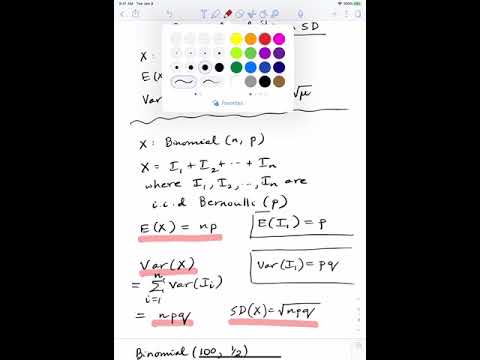 9:41 AM Tue Jan 9
SD
X:
E(X)
Var
√μ
Favorites
X: Binomial (n, p)
X = I₁ + I₂ + ... + Iₙ
where I₁, I₂, ..., Iₙ are
i.i.d Bernoulli (p)
E(X) = np
E(I₁) = p
Var(X)
Var(I₁) = pq
= Σ Var(Iᵢ)
n
i=1
= npq
SD(X) = √npq
Binomial (100, 1/2)